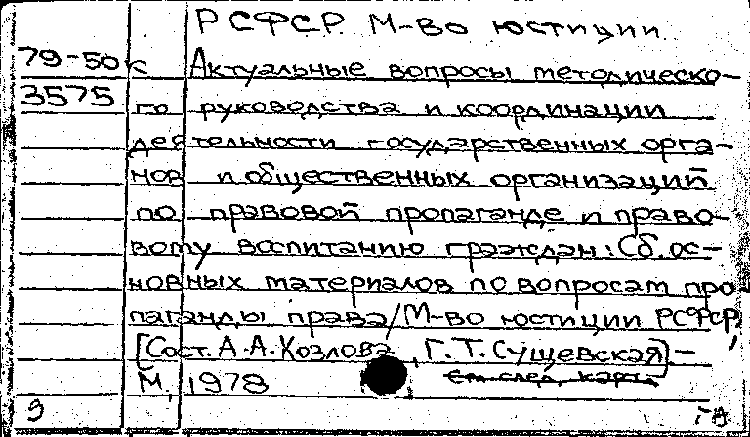 РСФСР. М-во юстиции.
79-50к Актуальные вопросы методическо-
3575 го руководства и координации
деятельности государственных орга-
нов и общественных организаций
по правовой пропаганде и право-
вому воспитанию граждан: Сб. ос-
новных материалов по вопросам про-
паганды права/М-во юстиции РСФСР,
[Сост. А.А.Козлова, Г.Т.Сущевская]-
М, 1978 См след. карт
9